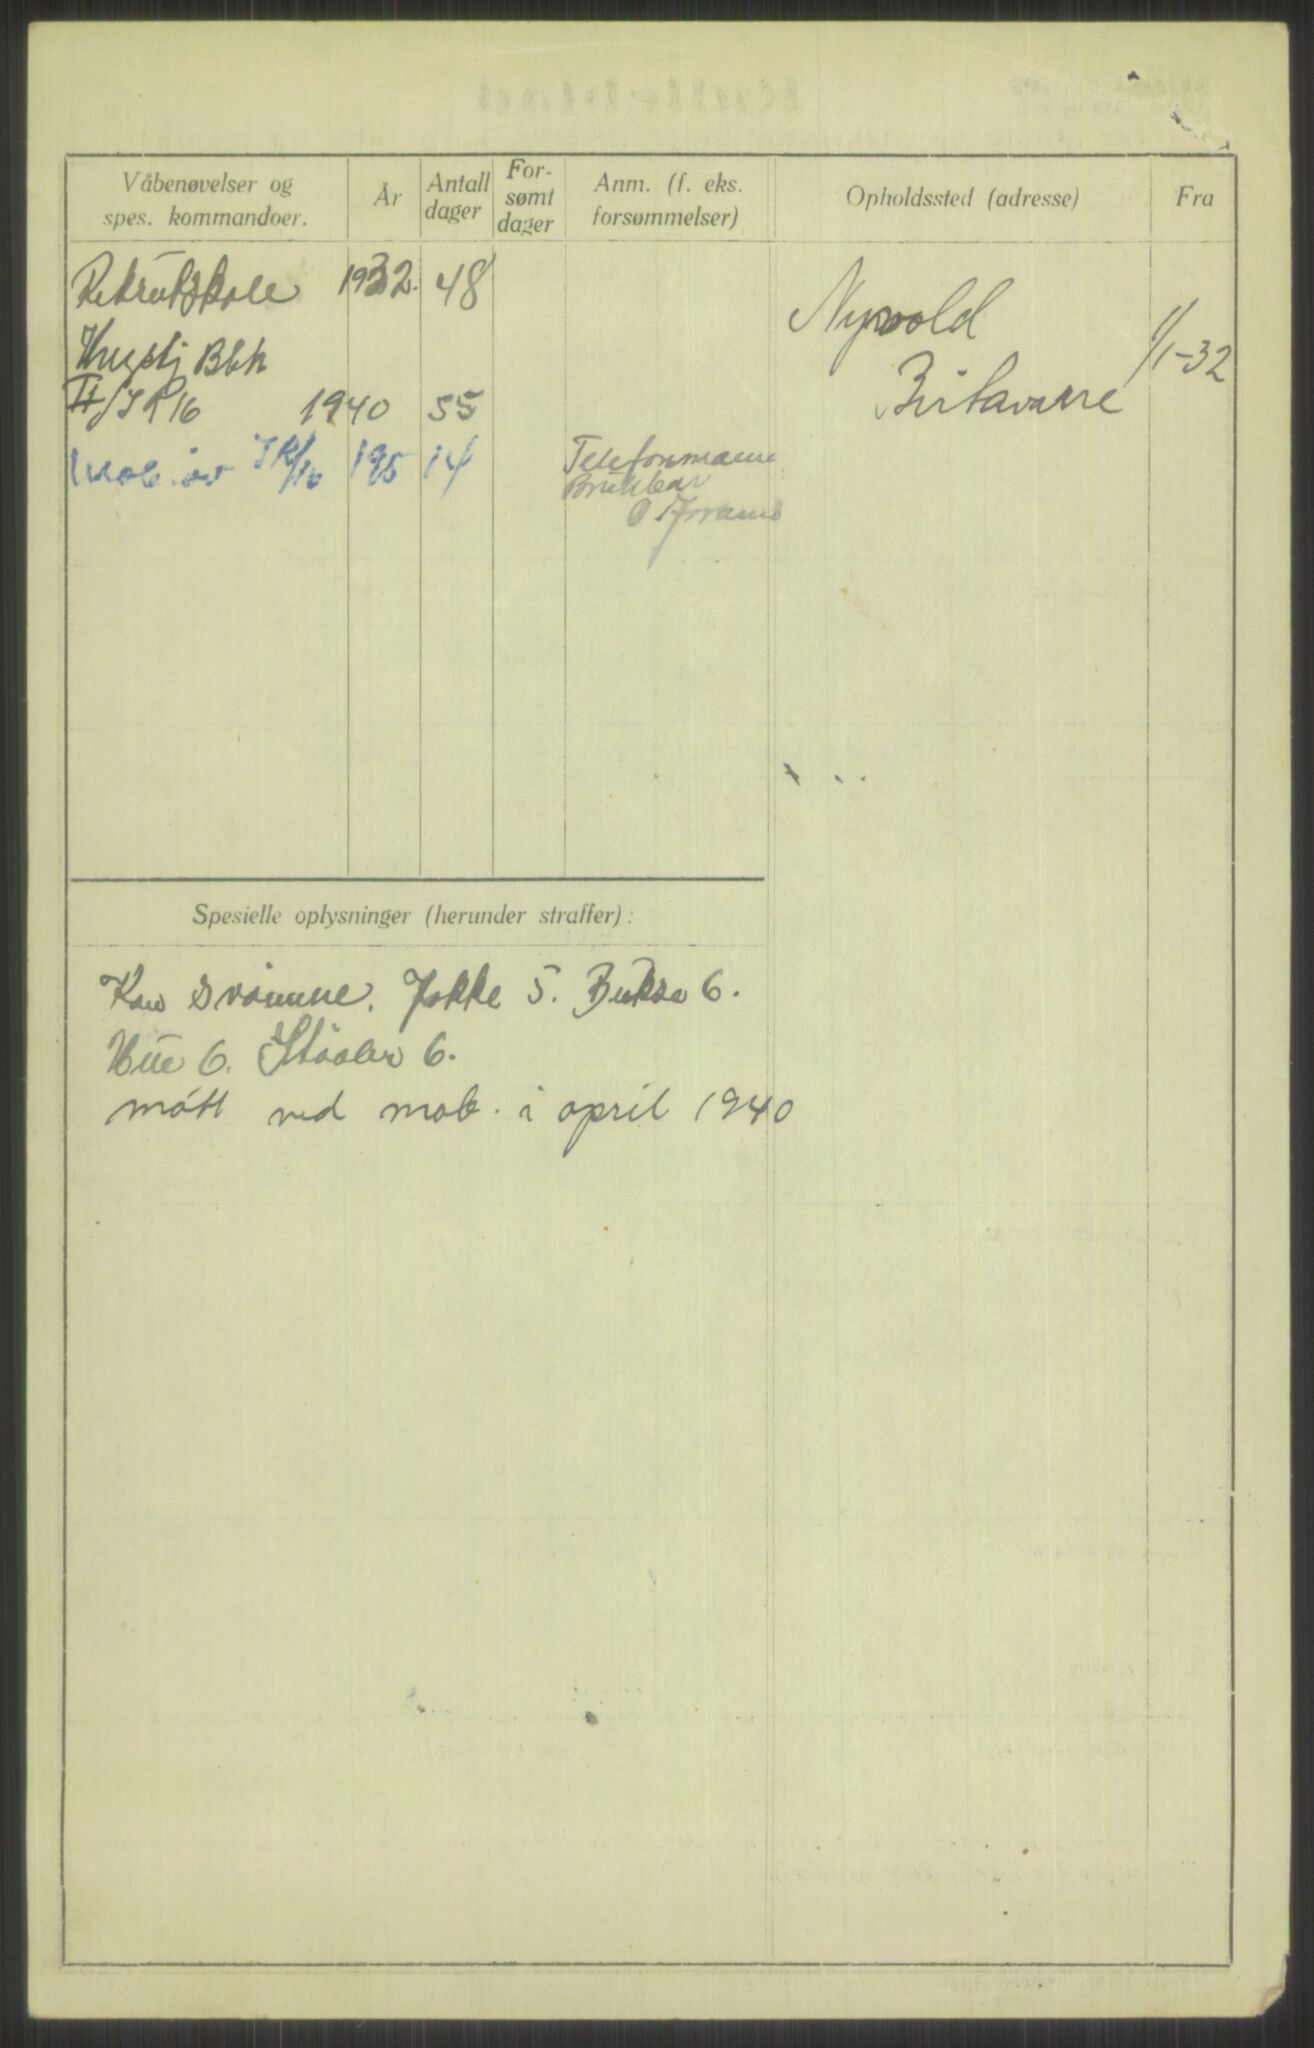 Våbenøvelser og
spes. kommandoer.
År
Antall
dager
For-
sømt
dager
Anm. (f. eks.
forsømmelser)
Opholdssted (adresse)
Fra
Rekrutskole 1932. 48
Nyvold
Birtavarre
1/1-32
II/IR 16 1940 55
IR/16 14
Telefonmann
Brukbar
Spesielle oplysninger (herunder straffer):
Kan svømme. Jakke 5. Bukse 6.
Hue 6. Støvler 6.
møtt ved mob. i april 1940